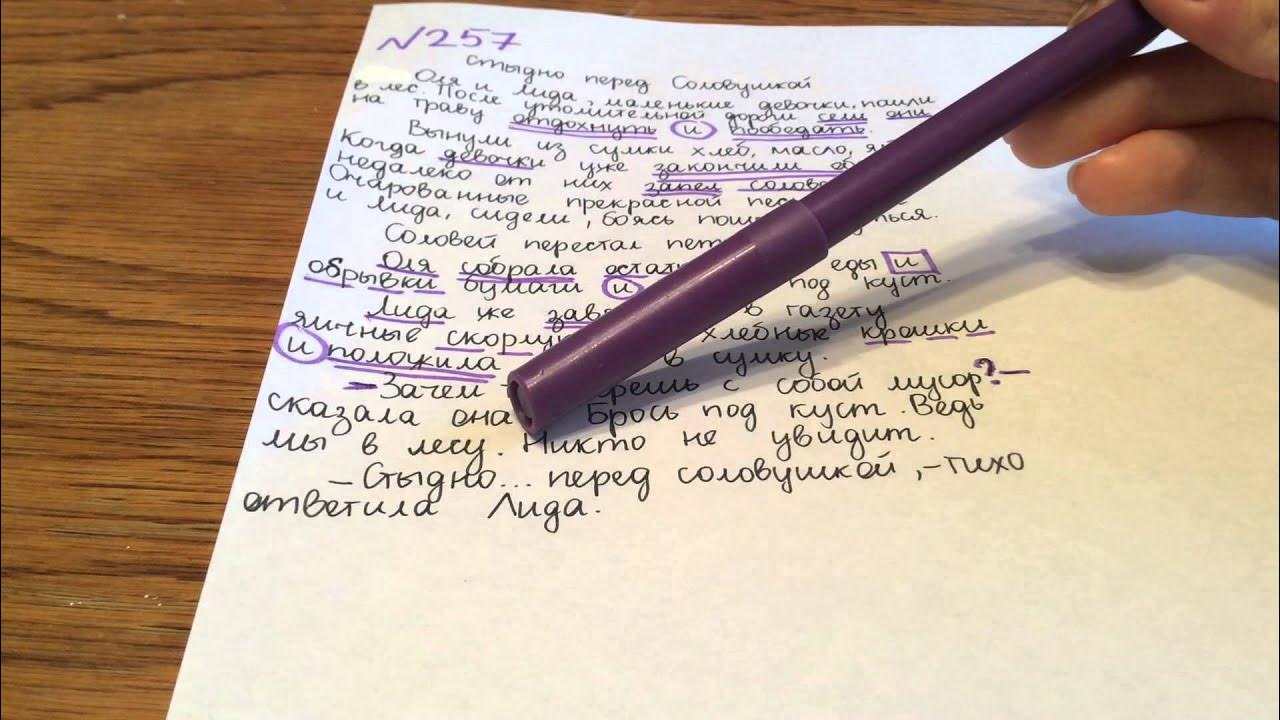 №257
Стыдно перед Соловушкой
Оля и Лида, маленькие девочки, пошли
в лес. После утомительной дороги сели они
на траву отдохнуть и пообедать.
Вынули из сумки хлеб, масло,
Когда девочки уже закончили
недалеко от них запел
Очарованные прекрасной
и Лида, сидели, боясь
Соловей перестал
Оля собрала еды и
обрывки бумаги и под куст.
Лида же в газету
яичные хлебные крошки
и положила в сумку.
– Зачем с собой мусор? –
сказала она Брось под куст. Ведь
мы в лесу. Никто не увидит.
– Стыдно... перед соловушкой, – тихо
ответила Лида.